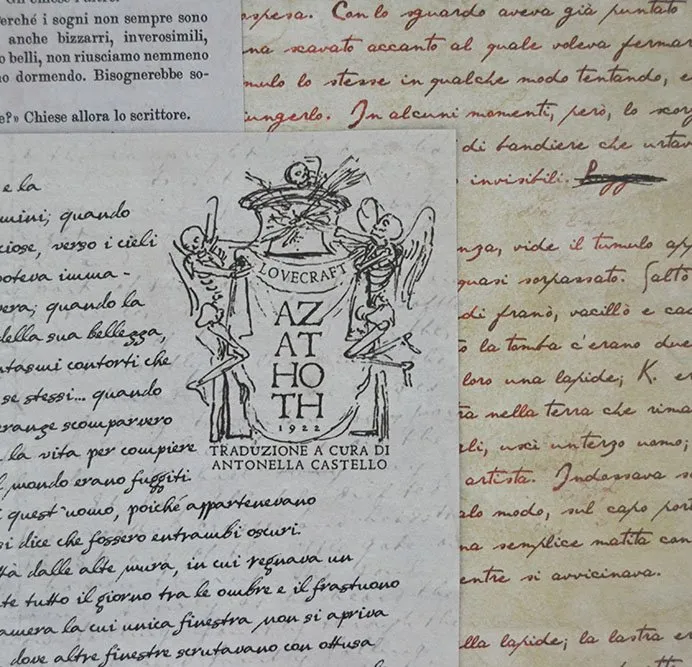 erché i sogni non sempre sono
anche bizzarri, inverosimili,
o belli, non riusciamo nemmeno
o dormendo. Bisognerebbe so-
e?» Chiese allora lo scrittore.
spesa. Con lo sguardo aveva già puntato
na scavato accanto al quale voleva fermar
mulo lo stesse in qualche modo tentando, e
ungerlo. In alcuni momenti, però, lo scor
di bandiere che urtav
invisibili.
nza, vide il tumulo app
quasi sorpassato. Saltò
di franò, vacillò e cad
o la tomba c'erano due
loro una lapide; K. er
ta nella terra che rima
li, uscì un terzo uomo;
artista. Indossava s
alo modo, sul capo port
na semplice matita con
entre si avvicinava.
lla lapide; la lastra er
e la
mini; quando
ciose, verso i cieli
poteva imma-
vera; quando la
della sua bellezza,
ntasmi contorti che
se stessi... quando
eranze scomparvero
la vita per compiere
l mondo erano fuggiti.
i quest'uomo, poiché appartenevano
si dice che fossero entrambi oscuri.
ttà dalle alte mura, in cui regnava un
te tutto il giorno tra le ombre e il frastuono
amera la cui unica finestra non si apriva
dove altre finestre scrutavano con ottusa
LOVECRAFT
AZ
AT
HO
TH
1922
TRADUZIONE A CURA DI
ANTONELLA CASTELLO